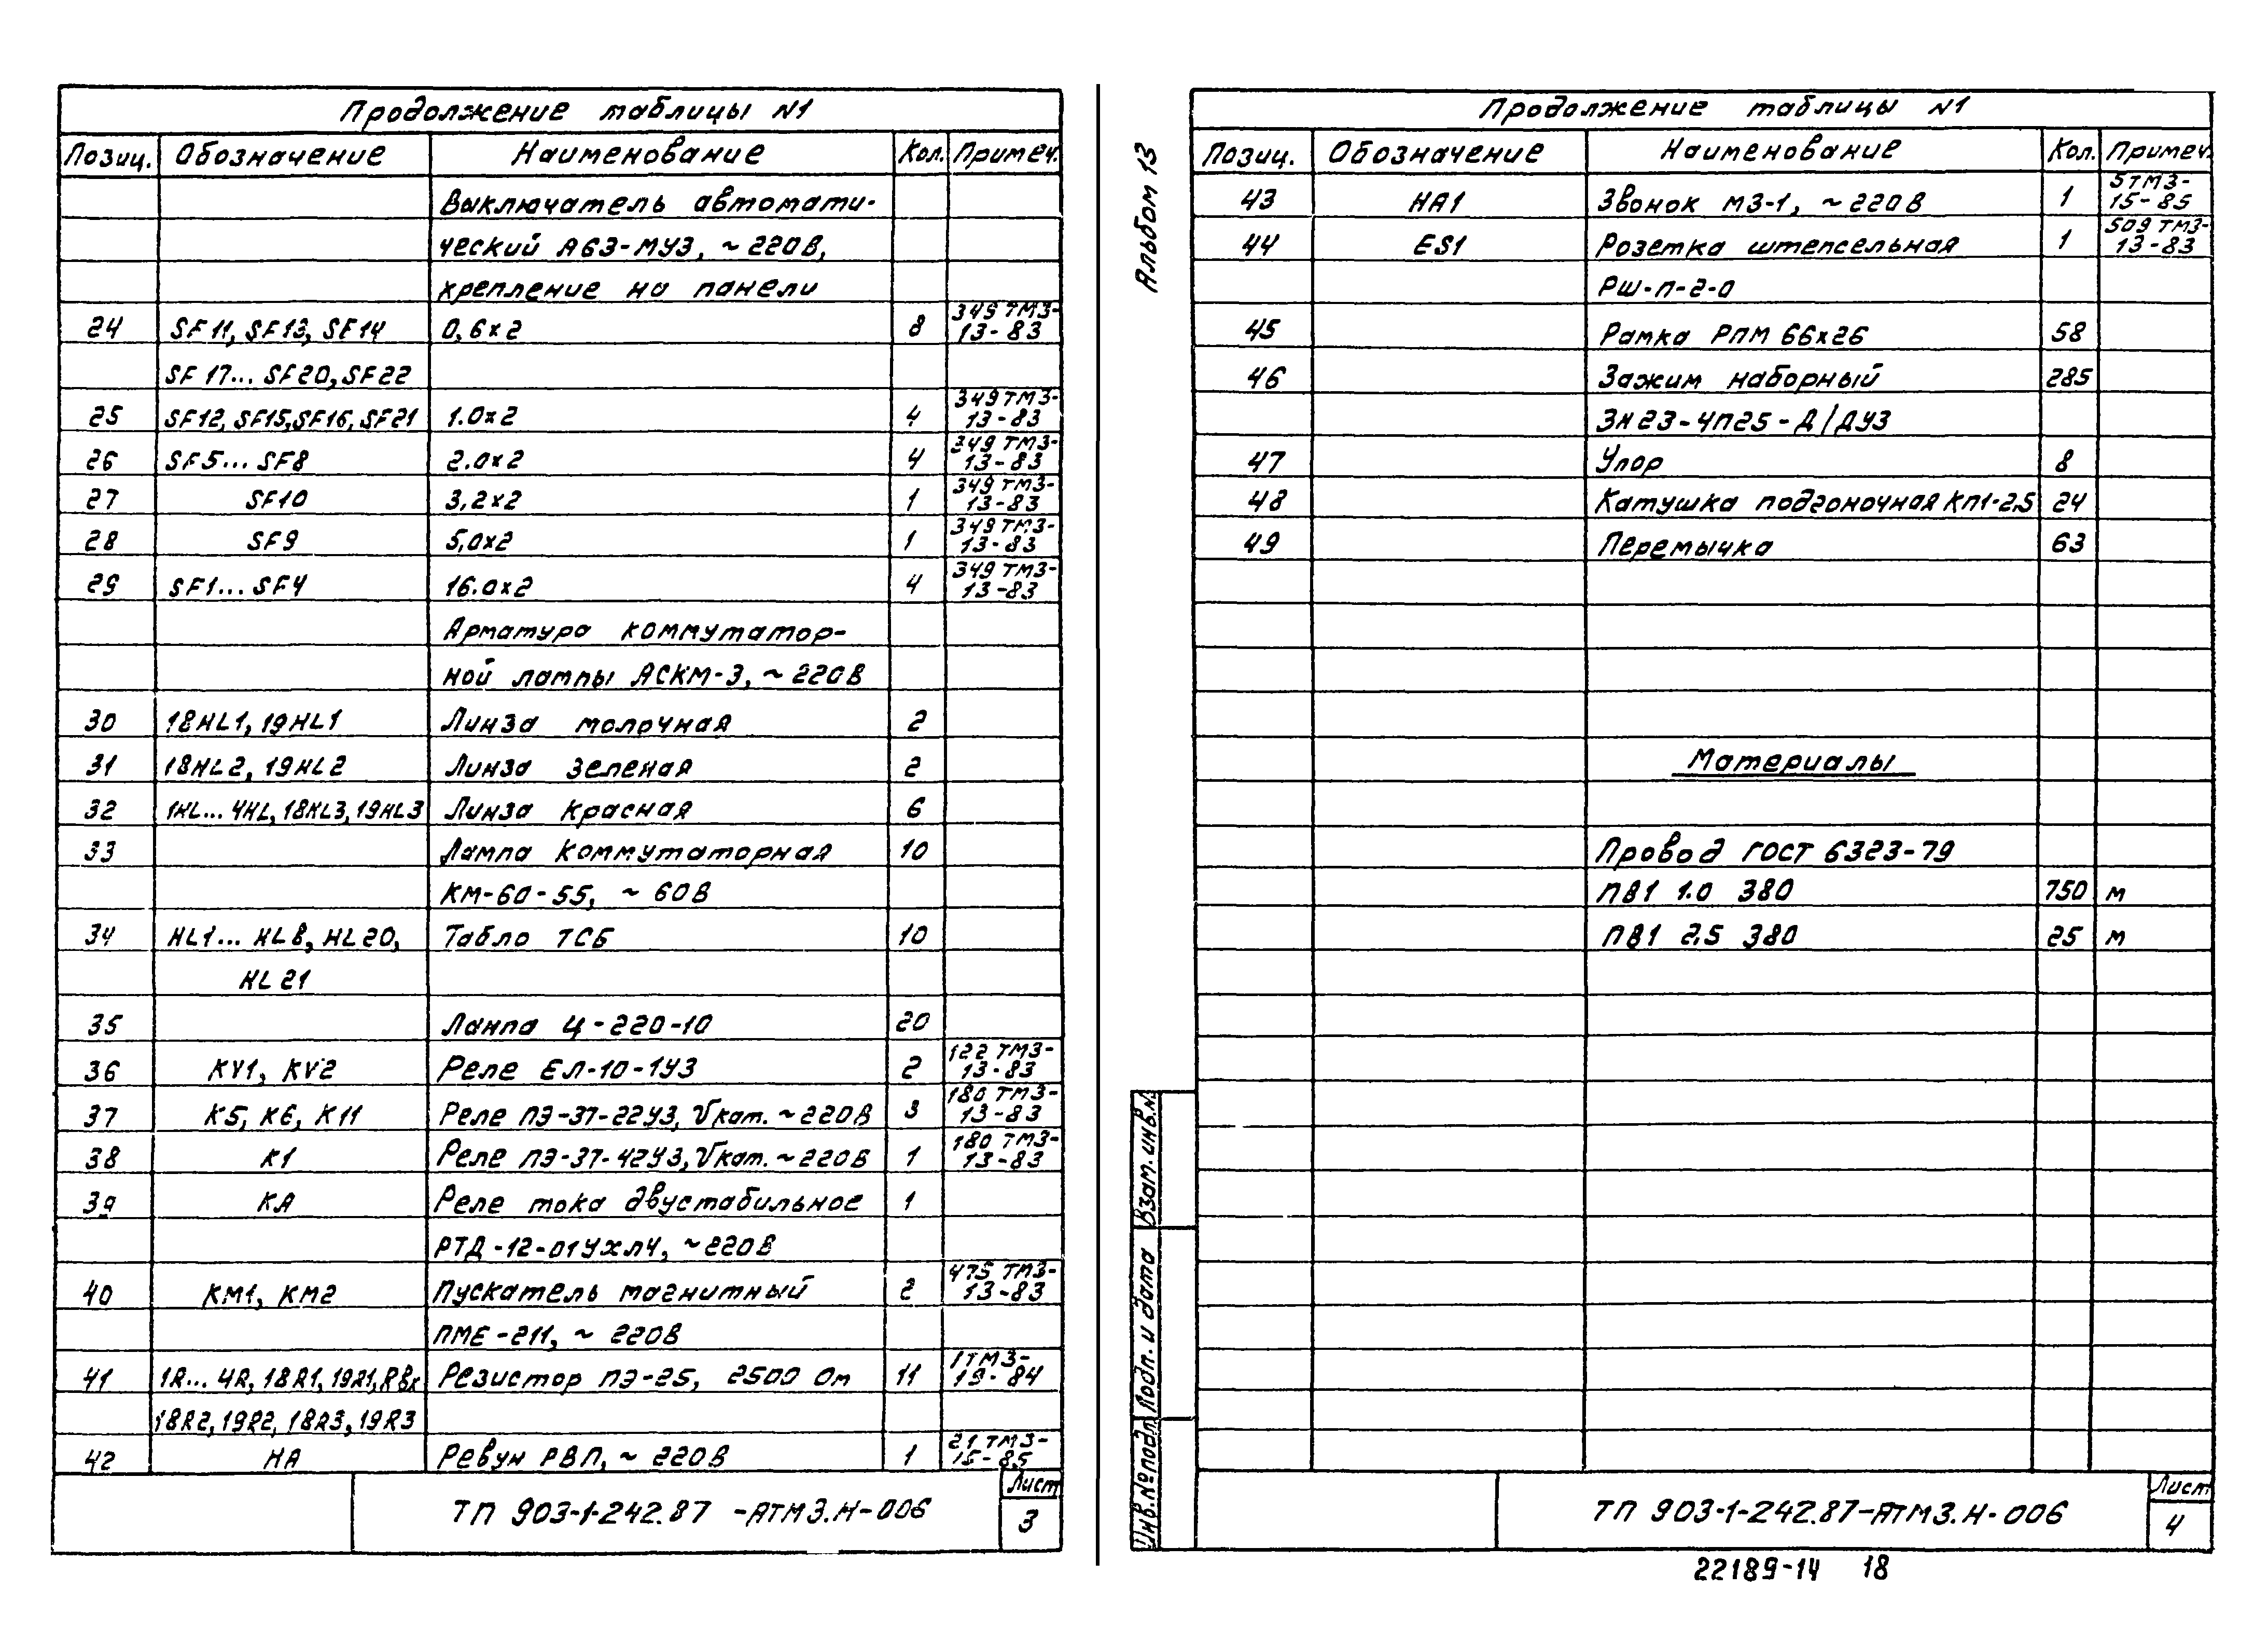 Продолжение таблицы N1
Позиц. Обозначение Наименование Кол. Примеч.
Выключатель автомати-
ческий А63-МУЗ, ~ 220В,
крепление на панели
349 ТМЗ-
24 SF11, SF13, SF14 0,6х2 8 13-83
SF17... SF20, SF22
349 ТМЗ-
25 SF12, SF15, SF16, SF21 1.0х2 4 13-83
349 ТМЗ-
26 SF5... SF8 2.0х2 4 13-83
349 ТМЗ-
27 SF10 3,2х2 1 13-83
349 ТМЗ-
28 SF9 5,0х2 1 13-83
349 ТМЗ-
29 SF1... SF4 16.0х2 4 13-83
Арматура коммутатор-
ной лампы АСКМ-3, ~ 220В
30 18HL1, 19HL1 Линза молочная 2
31 18HL2, 19HL2 Линза зеленая 2
32 1HL... 4HL, 18HL3, 19HL3 Линза красная 6
33 Лампа коммутаторная 10
КМ-60-55, ~ 60В
34 HL1... HL8, HL20, Табло ТСБ 10
HL21
35 Лампа Ц-220-10 20
122 ТМЗ-
36 KV1, KV2 Реле ЕЛ-10-1УЗ 2 13-83
180 ТМЗ-
37 K5, K6, K11 Реле ПЭ-37-22УЗ, Vкат. ~ 220В 3 13-83
180 ТМЗ-
38 K1 Реле ПЭ-37-42УЗ, Vкат. ~ 220В 1 13-83
39 KA Реле тока двустабильное 1
РТД-12-01УХЛ4, ~220В
475 ТМЗ-
40 KM1, KM2 Пускатель магнитный 2 13-83
ПМЕ-211, ~ 220В
1ТМЗ-
41 1R... 4R, 18R1, 19R1, Rвк Резистор ПЭ-25, 2500 Ом 11 19-84
18R2, 19R2, 18R3, 19R3
21 ТМЗ-
42 HA Ревун РВП, ~ 220В 1 15-85
Лист
ТП 903-1-242.87 -АТМЗ.Н-006 3
Альбом 13
Продолжение таблицы N1
Позиц. Обозначение Наименование Кол. Примеч.
5ТМЗ-
43 HA1 Звонок МЗ-1, ~ 220В 1 15-85
509 ТМЗ-
44 ES1 Розетка штепсельная 1 13-83
РШ-П-2-0
45 Рамка РПМ 66х26 58
46 Зажим наборный 285
ЗН23-4П25-Д/ДУЗ
47 Упор 8
48 Катушка подгоночная КП1-2,5 24
49 Перемычка 63
Материалы
Провод ГОСТ 6323-79
ПВ1 1.0 380 750 м
ПВ1 2,5 380 25 м
Взам. инв. N
Подп. и дата
Инв. № подл.
Лист
ТП 903-1-242.87-АТМЗ.Н-006 4
22189-14 18